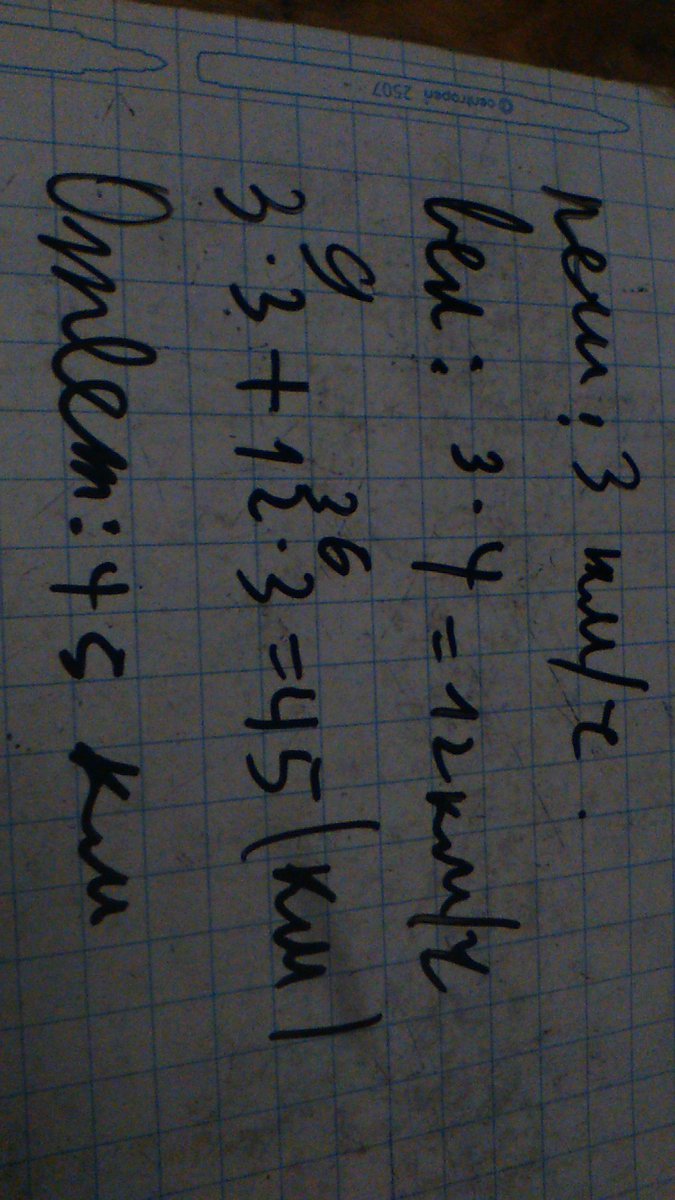 © centropen 2507
пеш: 3 км/ч.
вел: 3·4 = 12км/ч
9 36
3·3 + 12·3 = 45 (км)
Ответ: 45 км